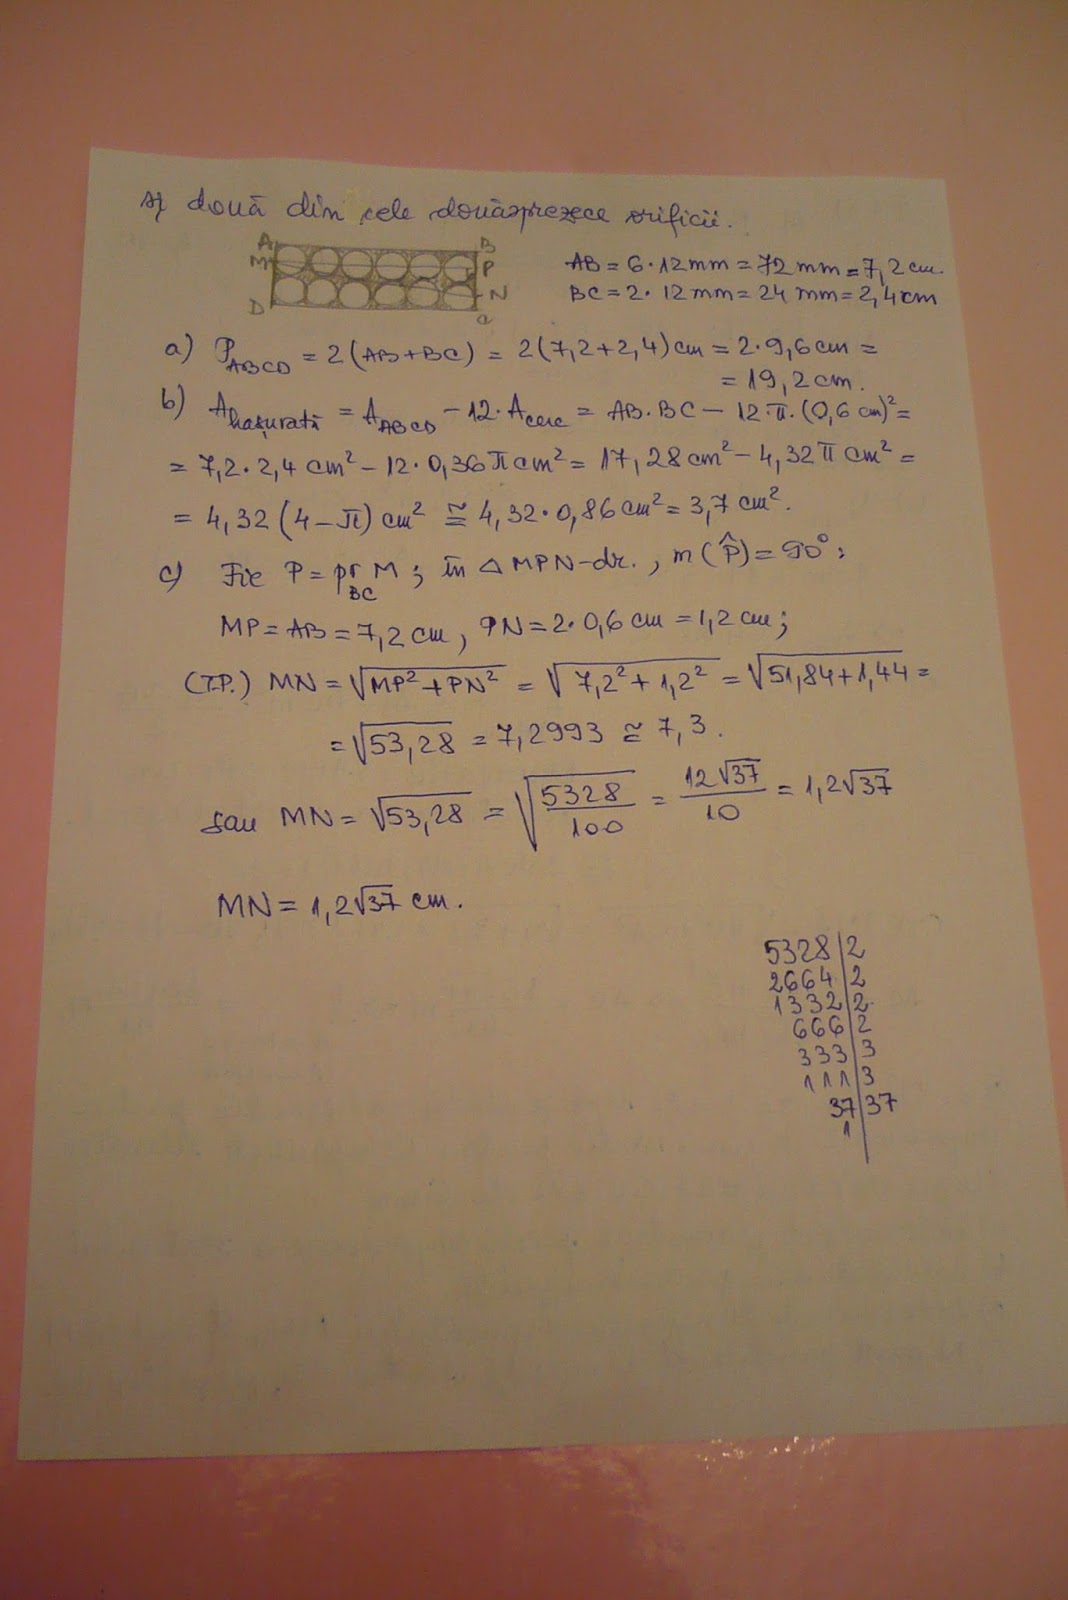 și două din cele douăsprezece orificii.
A B
M P
N
D C
AB = 6·12mm = 72 mm = 7,2 cm.
BC = 2·12mm = 24 mm = 2,4 cm
a) P_ABCD = 2(AB+BC) = 2(7,2+2,4)cm = 2·9,6cm =
= 19,2cm.
b) A_hașurată = A_ABCD − 12·A_cerc = AB·BC − 12·π·(0,6 cm)² =
= 7,2·2,4 cm² − 12·0,36π cm² = 17,28cm² − 4,32π cm² =
= 4,32(4−π) cm² ≅ 4,32·0,86cm² = 3,7 cm².
c) Fie P = pr_BC M; în △MPN-dr., m(P̂) = 90°:
MP = AB = 7,2 cm, PN = 2·0,6 cm = 1,2 cm;
(T.P.) MN = √(MP²+PN²) = √(7,2²+1,2²) = √(51,84+1,44) =
= √53,28 = 7,2993 ≅ 7,3.
sau MN = √53,28 = √(5328/100) = 12√37/10 = 1,2√37
MN = 1,2√37 cm.
5328|2
2664|2
1332|2
666|2
333|3
111|3
37|37
1|